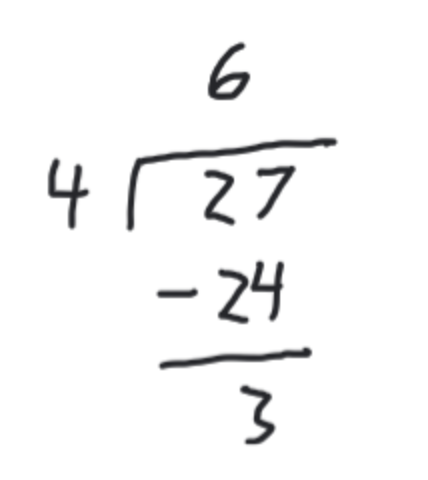 6
4 27
- 24
3